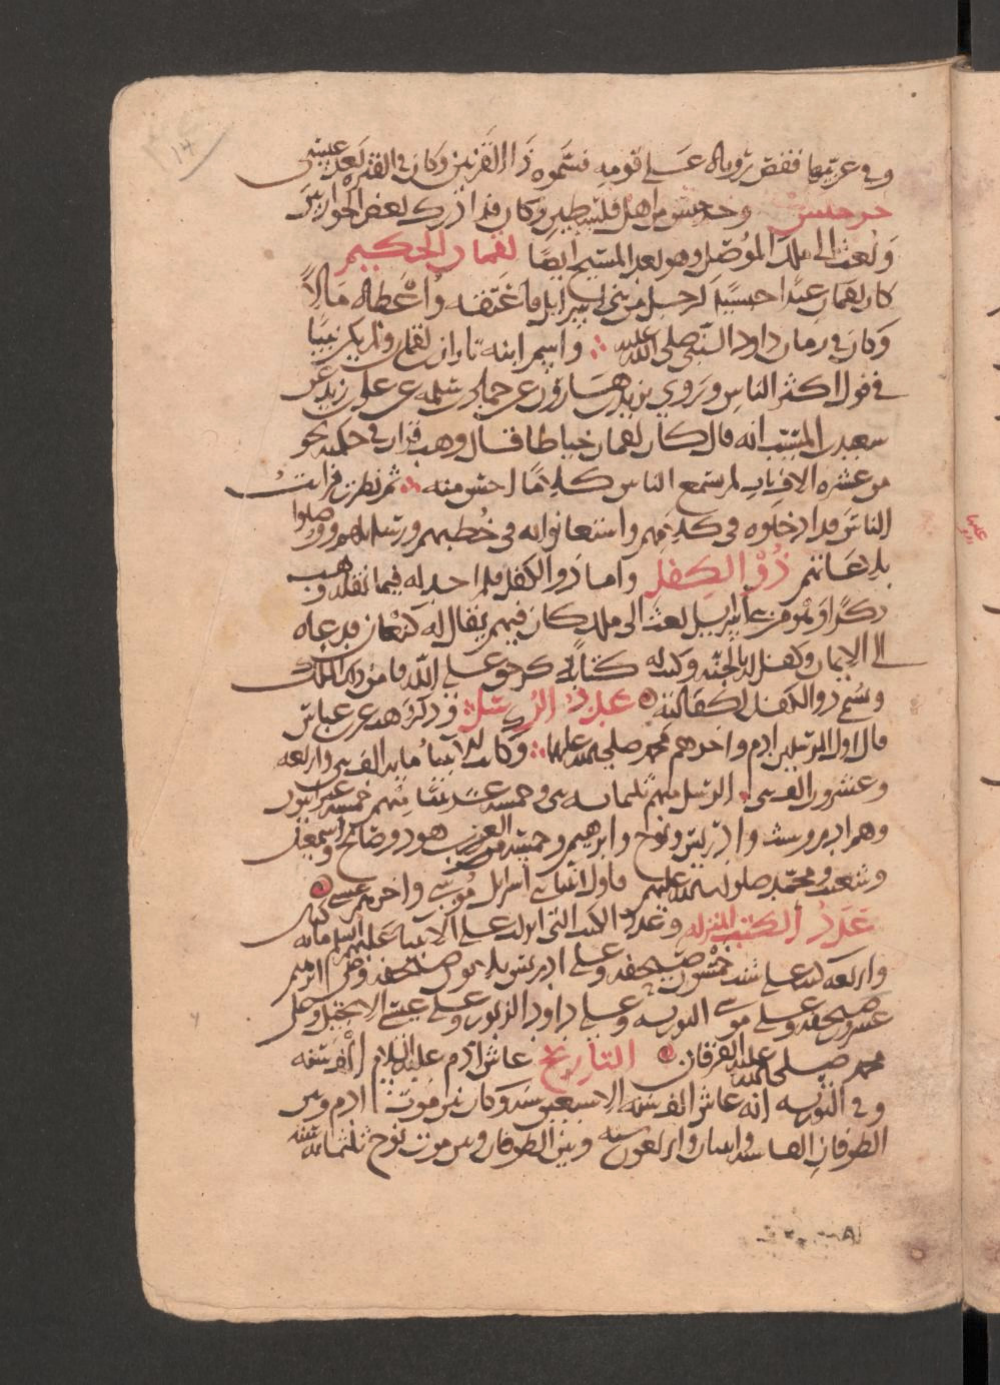 14
وفي غربيها فقص رؤياه على قومه فسموه ذا القرنين وكان في الفترة بعد عيسى
جرجيس وجرجيس من اهل فلسطين وكان قد ادرك بعض الحواريين
وبعث الى ملك الموصل وهو بعد المسيح ايضا لقمان الحكيم
كان لقمان عبدا حبشيا لرجل من بني اسرايل فاعتقه واعطاه مالا
وكان في زمان داود النبي صلى الله عليه واسم ابنه تاران لقمن ولم يكن نبيا
في قول اكثر الناس وروي يزيد بن هارون عن حماد بن سلمه عن علي بن زيد عن
سعيد بن المسيب انه قال كان لقمان خياطا قال وهب قرات في حكمته نحو
من عشره الاف باب لم يسمع الناس كلاما احسن منه ثم نظرت فرايت
الناس قد ادخلوه في كلامهم واستعانوا به في خطبهم ورسايلهم ووصلوا
بلاغاتهم ذو الكفل واما ذو الكفل فلم اجد له فيما نقله وهب
ذكرا وهو من بني اسرايل بعث الى ملك كان فيهم يقال له كنعان فدعاه
الى الايمان وكفل له بالجنة وكتب له كتابا بذكر حق على الله فامن ذلك الملك
وسمي ذو الكفل لكفالته عدد الرسل وذكر وهب عن ابن عباس
قال اول المرسلين ادم واخرهم محمد صلى الله عليهما وكانت الانبيا مايه الف نبي واربعه
وعشرون الف نبي الرسل منهم ثلثمايه نبي وخمسه عشر نبيا منهم خمسه عبرانيون
وهم ادم وشيث وادريس ونوح وابرهيم وخمسه من العرب هود وصالح واسمعيل
وشعيب ومحمد صلوات الله عليهم فاول انبيا بني اسرايل موسى واخرهم عيسى
عدد الكتب المنزله وعدد الكتب التي انزلت على الانبيا عليهم السلم مايه كتاب
واربعه كتب على شيث خمسون صحيفه وعلى ادريس ثلاثون صحيفه وعلى ابرهيم
عشرون صحيفه وعلى موسى التوريه وعلى داود الزبور وعلى عيسى الانجيل وعلى
محمد صلى الله عليه الفرقان التاريخ عاش ادم عليه السلام الف سنه
وفي التوريه انه عاش الف سنه الا سبعين سنه وكان بين موت ادم وبين
الطوفان الفا سنه واثنان واربعون سنه وبين الطوفان وبين موت نوح ثلثمايه سنه